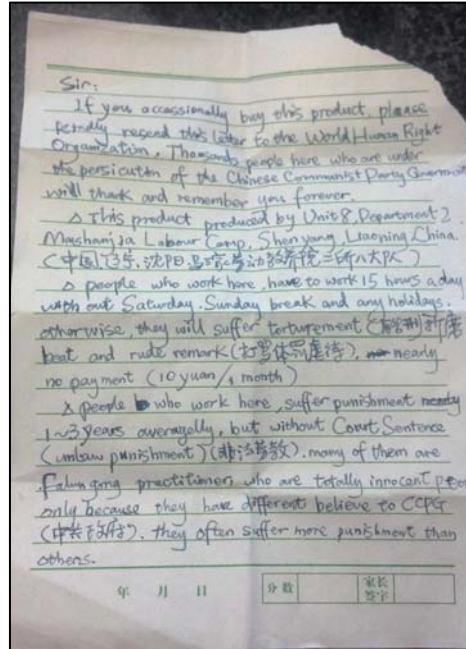 Sir:
If you occassionally buy this product, please
kindly resend this letter to the World Human Right
Organization. Thousands people here who are under
the persicution of the Chinese Communist Party Government
will thank and remember you forever.
△ This product produced by Unit 8, Department 2
Mashanjia Labour Camp, Shenyang, Liaoning, China.
(中国,辽宁,沈阳马三家劳动教养院二所八大队)
△ people who work here, have to work 15 hours a day
with out Saturday, Sunday break and any holidays,
otherwise, they will suffer torturement (酷刑折磨
beat and rude remark (打骂体罚虐待), nearly
no payment (10 yuan/1 month)
△ people who work here, suffer punishment
1~3 years averagelly, but without Court Sentence
(unlaw punishment) (非法劳教). many of them are
Falun gong practitioner, who are totally innocent
only because they have different believe to CCPG
(中共政府), they often suffer more punishment than
others.
年 月 日 分数 家长签字